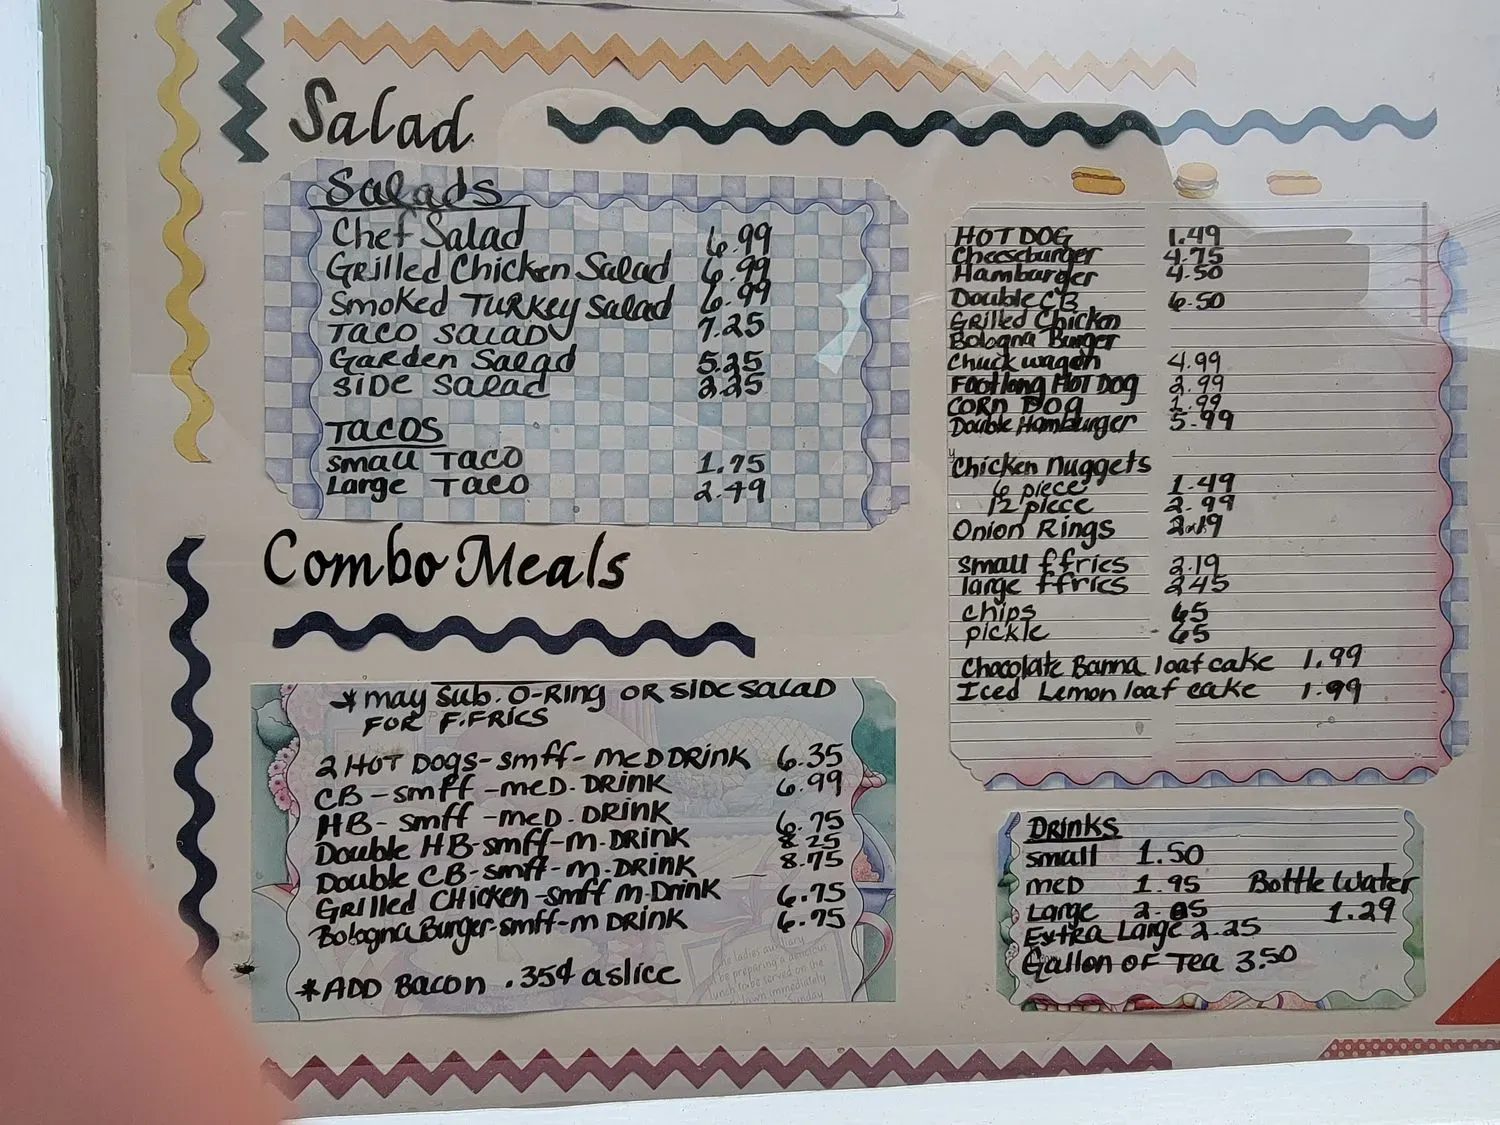 Salad
Salads
Chef Salad 6.99
Grilled Chicken Salad 6.99
Smoked TURKEY Salad 6.99
TACO SALAD 7.25
Garden Salad 5.25
SIDE Salad 2.25
TACOS
small TACO 1.75
Large TACO 2.49
Combo Meals
* may sub. O-Ring OR SIDE SALAD
FOR F.FRIES
2 HOT Dogs - smff - meD DRINK 6.35
CB - smff - meD. DRINK 6.99
HB - smff - meD. DRINK 6.75
Double HB - smff - m. DRINK 8.25
Double CB - smff - m. DRINK 8.75
GRIlled CHICKEN - smff m. DRINK 6.75
Bologna Burger - smff - m DRINK 6.75
* ADD Bacon .35¢ a slice
HOT DOG 1.49
Cheeseburger 4.75
Hamburger 4.50
Double CB 6.50
Grilled Chicken
Bologna Burger
Chuckwagon 4.99
Footlong HOT DOG 2.99
CORN DOG 1.99
Double Hamburger 5.99
Chicken nuggets
6 piece 1.49
12 piece 2.99
Onion Rings 2.19
small ffries 2.19
large ffries 2.45
chips 65
pickle 65
Chocolate Banna loaf cake 1.99
Iced Lemon loaf cake 1.99
DRINKS
small 1.50
meD 1.95 Bottle Water
Large 2.05 1.29
Extra Large 2.25
Gallon OF Tea 3.50